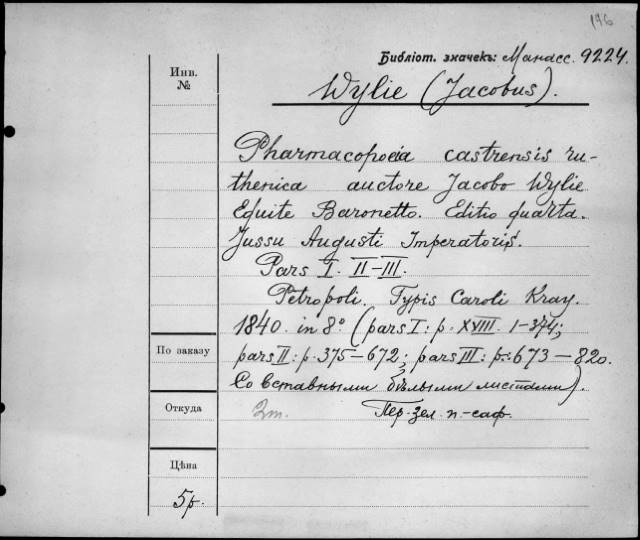 196
Библіот. значекъ: Манасс. 9224.
Инв.
№
Wylie (Jacobus).
Pharmacopoeia castrensis ru-
thenica auctore Jacobo Wylie
Equite Baronetto. Editio quarta.
Jussu Augusti Imperatoris.
Pars I. II–III.
Petropoli. Typis Caroli Kray.
1840. in 8° (pars I: p. XVIII. 1–374;
По заказу
pars II: p. 375–672; pars III: p. 673–820.
Со вставными бѣлыми листами).
Откуда
2т. Пер. зел. п.-саф.
Цѣна
5р.